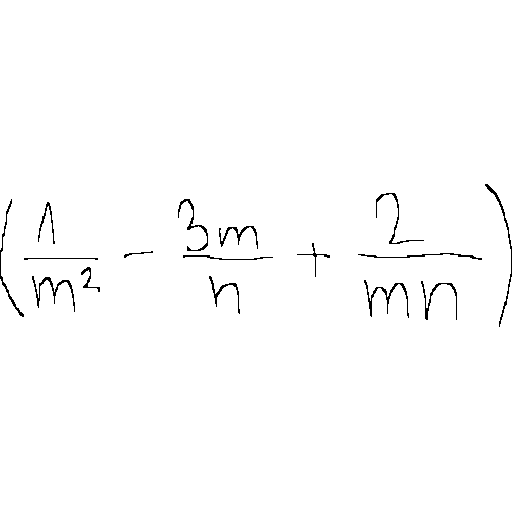 \left( \frac{1}{m^2} - \frac{3m}{n} + \frac{2}{mn} \right)